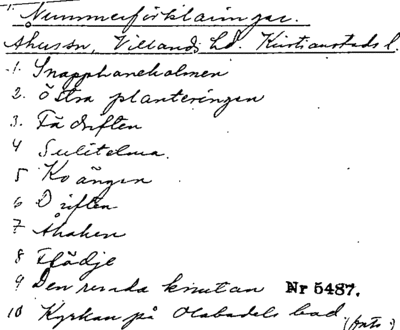 Nummerförklaringar.
Åhussn, Villands hd. Kristianstads l.
1. Snapphaneholmen
2. Östra planteringen
3. Fä driften
4 Sulitelma.
5 Ko ängen
6 Driften
7 Åhaken
8 Flädje
9 Den runda knutan Nr 5487.
10 Kyrkan på